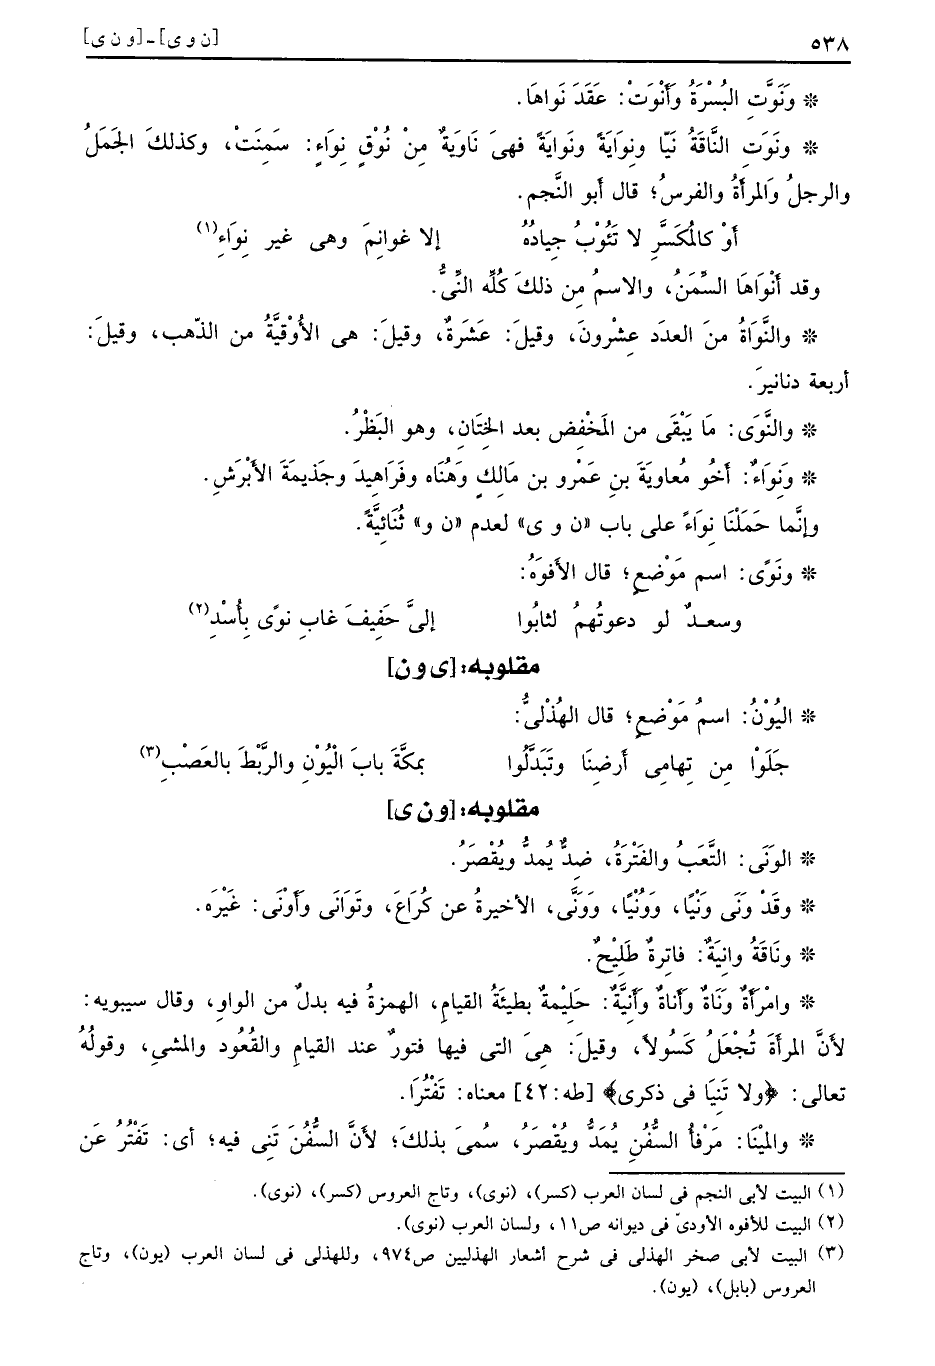 ٥٣٨ [ن و ى] - [و ن ى]
* ونَوَّتِ البُسْرَةُ وأَنْوَتْ: عَقَدَ نَواهَا.
* ونَوَتِ النَّاقَةُ نَيّا ونِوَايَةً ونَوايَةً فهىَ نَاوِيَةٌ مِنْ نُوْقٍ نِواءٍ: سَمِنَتْ، وكذلكَ الجَمَلُ
والرجلُ والمرأَةُ والفرسُ؛ قال أبو النَّجم.
أوْ كالمُكَسَّرِ لا تَئُوْبُ جِيادُهُ إلا غوانِمَ وهى غير نِوَاءِ(١)
وقد أنْوَاهَا السِّمَنُ، والاسمُ مِن ذلكَ كُلِّه النِّىُّ.
* والنَّوَاةُ منَ العدَد عِشْرونَ، وقيلَ: عَشَرةٌ، وقيلَ: هى الأُوْقيَّةُ من الذّهب، وقيلَ:
أربعة دنانيرَ.
* والنَّوَى: مَا يَبْقَى من المَخْفِض بعد الخِتَان، وهو البَظْرُ.
* ونِوَاءٌ: أخُو مُعاويَةَ بنِ عَمْرو بن مَالكٍ وهُنَاه وفَرَاهِيدَ وجَذيمَةَ الأبْرَشِ.
وإنَّما حَمَلْنَا نِواءً على باب «ن و ى» لعدم «ن و» ثُنَائيَّةً.
* ونَوًى: اسم مَوْضعٍ؛ قال الأفوَهُ:
وسعـدٌ لو دعوتُهمُ لثابُوا إلىَّ حَفِيفَ غابِ نوًى بِأُسْدِ(٢)
مقلوبه: [ى و ن]
* اليُوْنُ: اسمُ مَوْضعٍ؛ قال الهُذْلىُّ:
جَلَوْا مِن تِهامِى أرضِنَا وتَبَدَّلُوا بمكَّةَ بابَ الْيُوْنِ والرَّبْطَ بالعَصْبِ(٣)
مقلوبه: [و ن ى]
* الونَى: التَّعَبُ والفَتْرَةُ، ضِدٌّ يُمدُّ ويُقْصَرُ.
* وقَدْ ونَى ونْيًا، وَوُنْيًا، ووَنًّى، الأخيرةُ عن كُرَاعَ، وتَوَانَى وأَوْنَى: غَيْرَه.
* ونَاقَةُ وانِيَةٌ: فاتِرةٌ طَلِيْحٌ.
* وامْرأةٌ ونَاةٌ وأناةٌ وأنِيَّةٌ: حَلِيْمةٌ بطيئَةُ القيام، الهمزةُ فيه بدلٌ من الواوِ، وقال سيبويه:
لأنَّ المرأةَ تُجْعَلُ كَسُولاً، وقيلَ: هىَ التى فيها فتورٌ عند القيامِ والقُعُودِ والمشىِ، وقولُهُ
تعالى: ﴿ولا تَنِيَا فى ذكرى﴾ [طه: ٤٢] معناه: تَفْتُرَا.
* والمِيْنَا: مَرْفأُ السُّفُنِ يُمَدُّ ويُقْصَرُ، سُمىَ بذلكَ؛ لأنَّ السُّفُنَ تَنِى فيه؛ أى: تَفْتُرُ عَن
(١) البيت لأبى النجم فى لسان العرب (كسر)، (نوى)، وتاج العروس (كسر)، (نوى).
(٢) البيت للأفوه الأودىّ فى ديوانه ص١١، ولسان العرب (نوى).
(٣) البيت لأبى صخر الهذلى فى شرح أشعار الهذليين ص٩٧٤، وللهذلى فى لسان العرب (يون)، وتاج
العروس (بابل)، (يون).